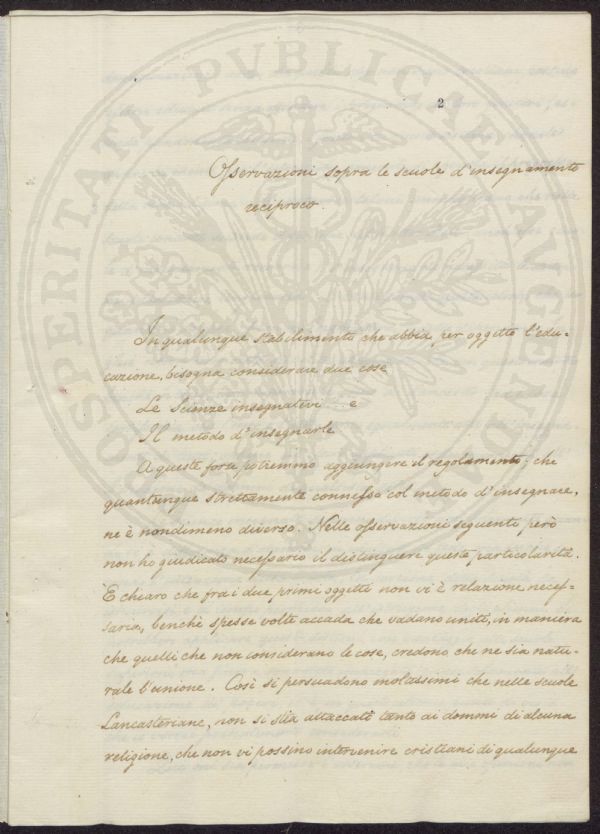 2
Osservazioni sopra le scuole d'insegnamento
reciproco.
In qualunque stabilimento che abbia per oggetto l'edu-
cazione, bisogna considerare due cose
Le Scienze insegnatevi e
Il metodo d'insegnarle
A queste forse potremmo aggiungere il regolamento, che
quantunque strettamente connesso col metodo d'insegnare,
ne è nondimeno diverso. Nelle osservazioni seguenti però
non ho giudicato necessario il distinguere questa particolarità.
E chiaro che fra i due primi oggetti non vi è relazione neces-
saria, benchè spesse volte accada che vadano uniti, in maniera
che quelli che non considerano le cose, credono che ne sia natu-
rale l'unione. Così si persuadono moltissimi che nelle scuole
Lancasteriane, non si stia attaccati tanto ai dommi di alcuna
religione, che non vi possino intervenire cristiani di qualunque
PROSPERITATI PVBLICAE AVGENDAE